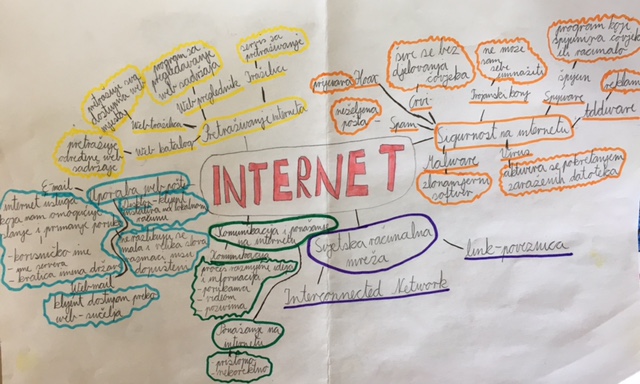 INTERNET
Pretraživanje interneta
Web-tražilica
pretražuje sva
dostupna web
mjesta
Web katalog
pretražuje
određene web
sadržaje
Web-preglednik
program za
pregledavanje
web-sadržaja
Tražilice
servis za
pretraživanje
Sigurnost na internetu
Hoax
prijevara
Spam
neželjena
pošta
Crvi
šire se bez
djelovanja
čovjeka
Trojanski konj
ne može
sam
sebe
umnožiti
Spyware
špijun
program koji
špijunira čovjeka
ili računalo
Addware
reklame
Malware
zlonamjerni
softver
Virus
aktivira se pokretanjem
zaraženih datoteka
Svjetska računalna
mreža
link-poveznica
Interconnected Network
Komunikacija i ponašanje
na internetu
Komunikacija
proces razmjene ideja
i informacija
-porukama
-videom
-pozivima
Ponašanje na
internetu
pristojno
-nekorektno
Uporaba web-pošte
E-mail
internet usluga
koja nam omogućuje
slanje i primanje poruka
-korisničko ime
-ime servera
-kratica imena države
klijent
na lokalnom
računu
Web-mail
klijent dostupan preko
web-sučelja